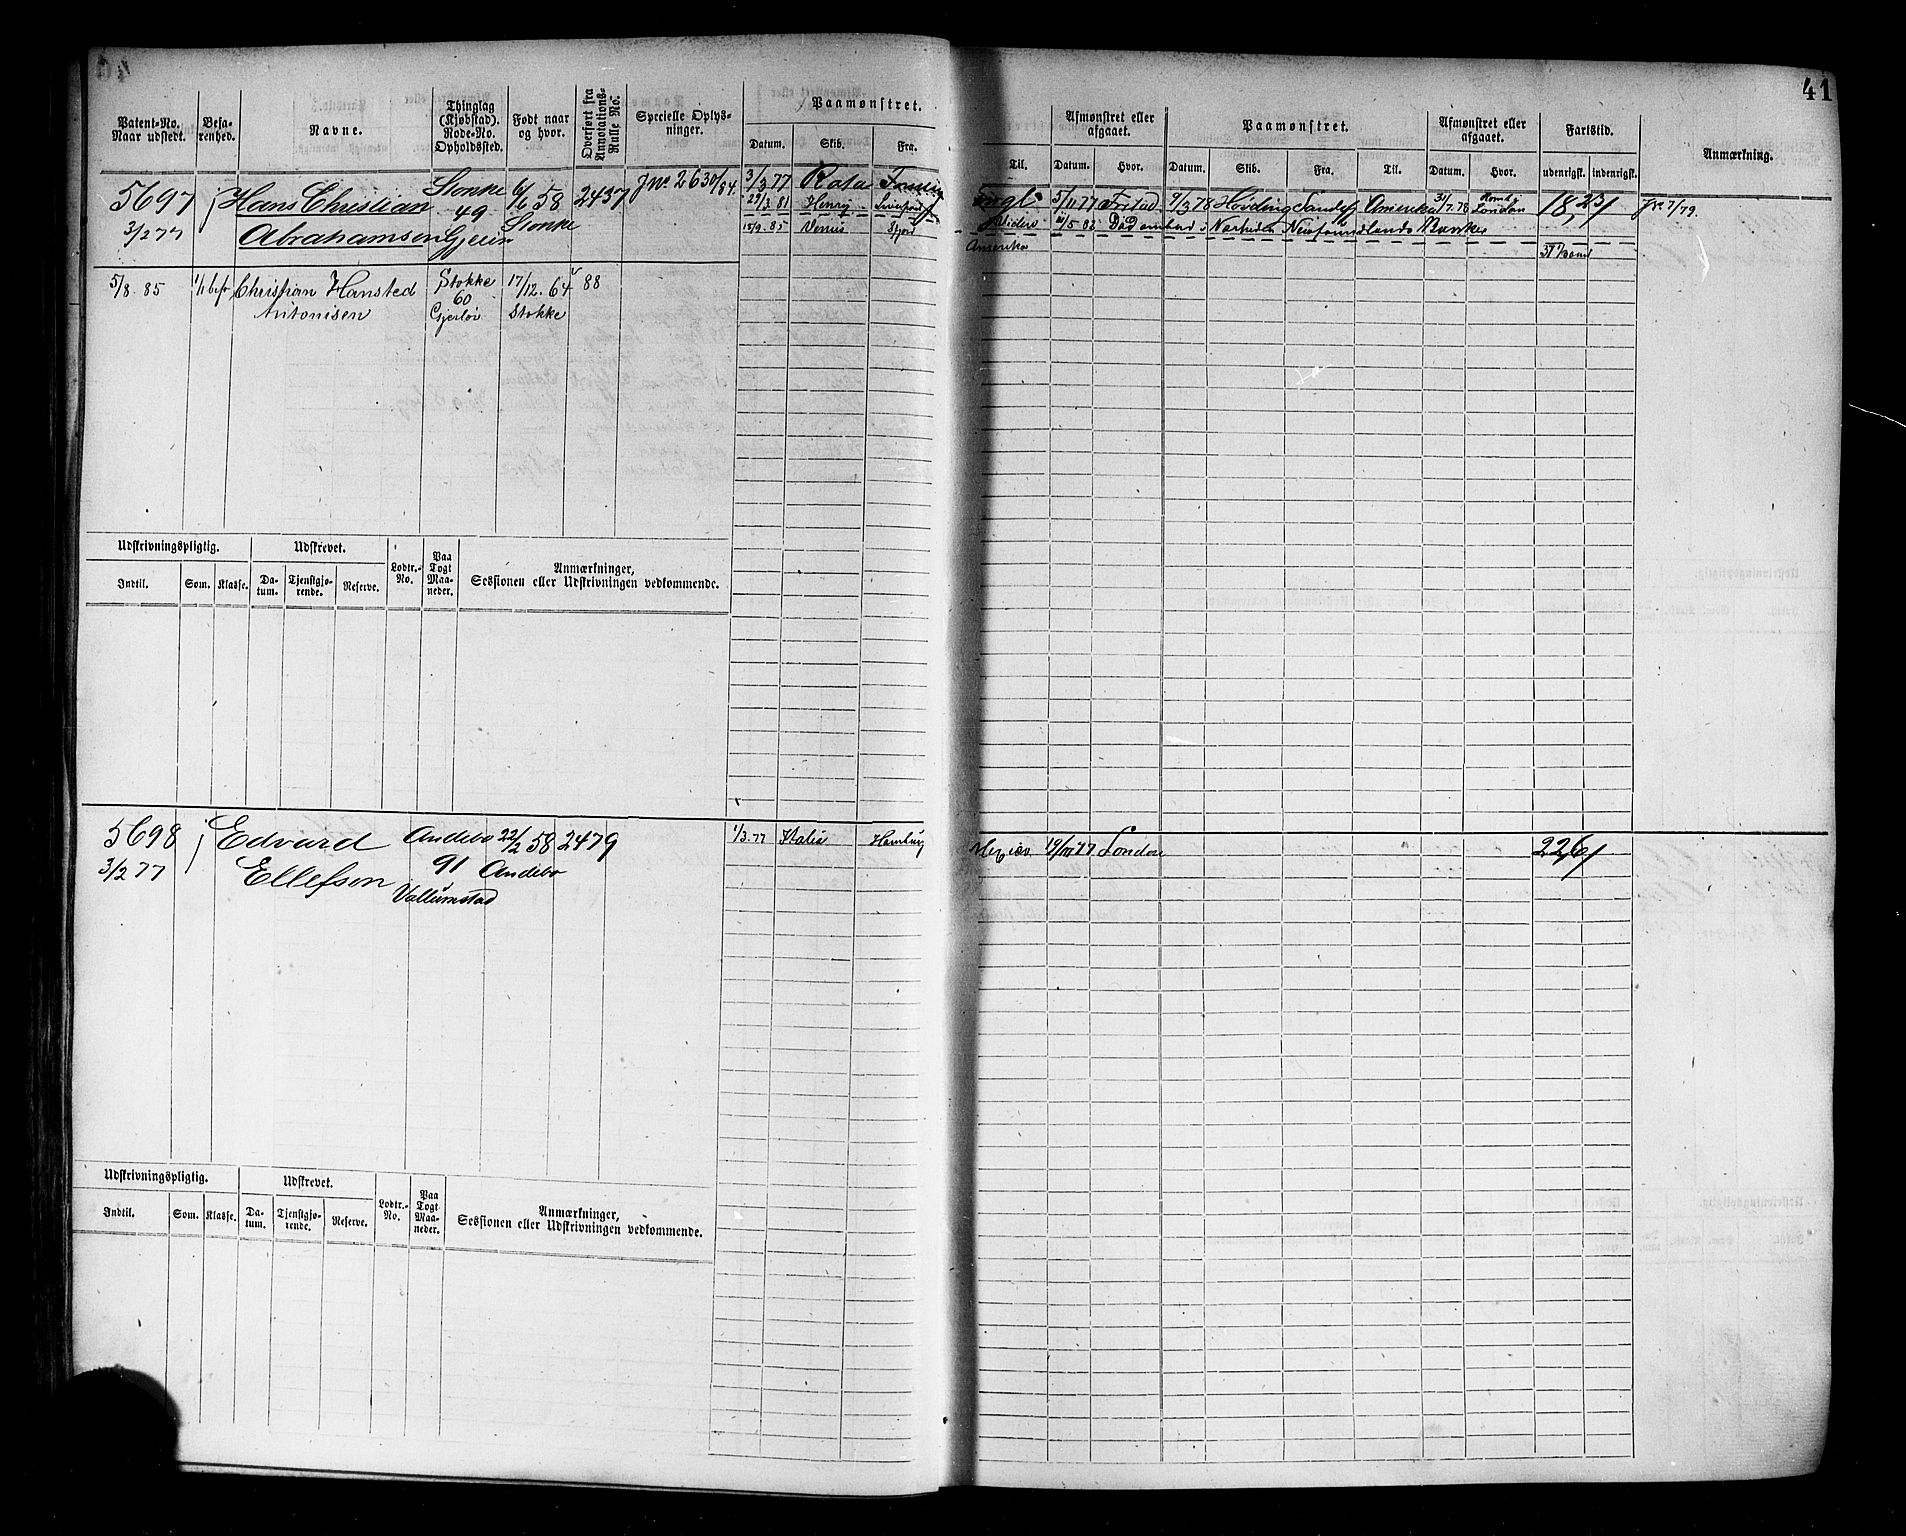 41
Patent-No. Naar udstedt.
Befarenhed.
Navne.
Thinglag (Kjøbstad). Rode-No. Opholdssted.
Født naar og hvor.
Overført fra Annotations-Rulle No.
Specielle Oplysninger.
Paamønstret.
Datum. Skib. Fra. Til.
Afmønstret eller afgaaet.
Datum. Hvor.
Paamønstret.
Datum. Skib. Fra. Til.
Afmønstret eller afgaaet.
Datum. Hvor.
Fartstid.
udenrigsk. indenrigsk.
Anmærkning.
5697 Hans Christian Stokke 6/6 58 2437 Jno 2630/84 3/3 77 Rota
5/11 77 Frstad 9/3 78 Hvding Sandefj Amerika 31/7.78 London 18,23 Jno 7/79.
3/2 77 Abrahamsen 49 Gjein Stokke
29/3.81 Henry Liverpool
Død ombord i Narhiden Newfoundlands Banker
15/9.85 Venus
Amerika
5/8.85 Christian Hansted Antonisen Stokke 60 Gjerløi 17/12.64 Stokke 88
Udskrivningspligtig. Udskrevet. Lodtr.-No. Paa Togt Maaneder. Anmærkninger,
Indtil. Som. Klasse. Datum. Tjenstgjørende. Reserve. Sessionen eller Udskrivningen vedkommende.
5698 Edvard Andebo 22/2 58 2479 1/3.77 Italia Hamburg
Mexico 19/10 77 London 22,6
3/2 77 Ellefsen 91 Andebo
Vallumstad
Udskrivningspligtig. Udskrevet. Lodtr.-No. Paa Togt Maaneder. Anmærkninger,
Indtil. Som. Klasse. Datum. Tjenstgjørende. Reserve. Sessionen eller Udskrivningen vedkommende.